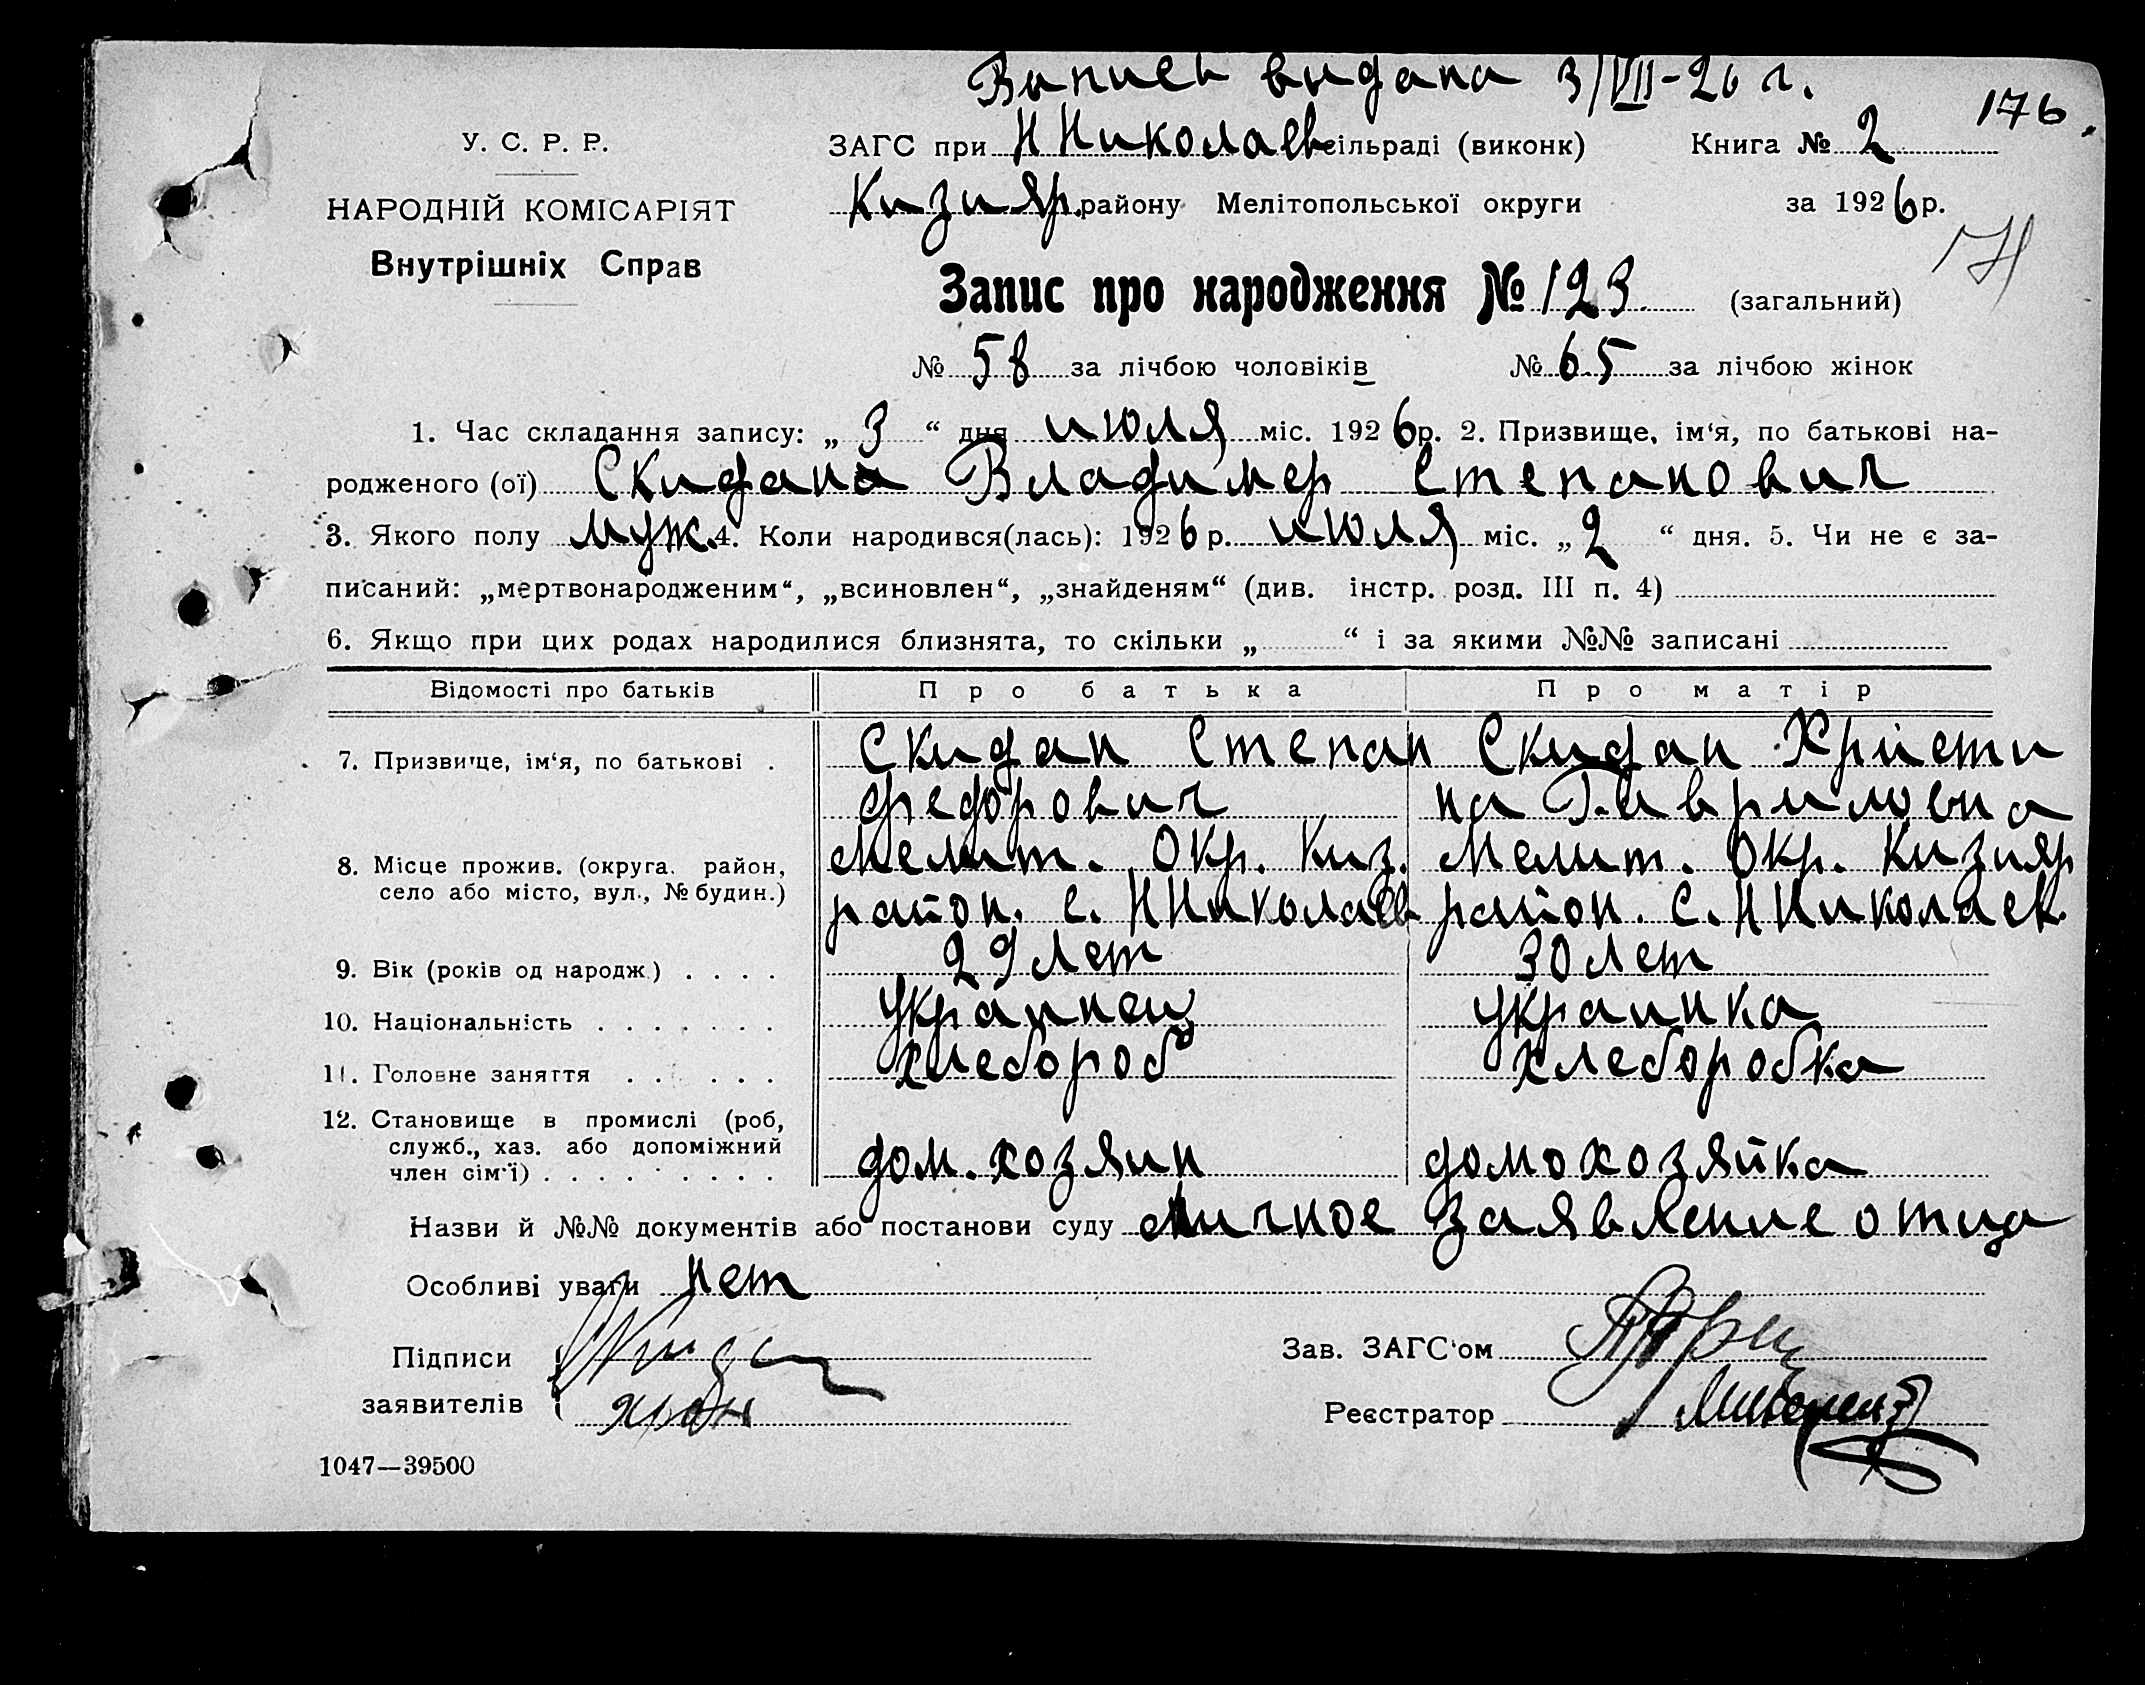 Выпись выдана 3/VII-26 г.
176.
У. С. Р. Р.
ЗАГС при Н Николаевсільраді (виконк) Книга № 2
НАРОДНІЙ КОМІСАРІЯТ
Кизияр. району Мелітопольської округи за 1926 р.
Внутрішніх Справ
Запис про народження № 123. (загальний)
№ 58 за лічбою чоловіків № 65 за лічбою жінок
1. Час складання запису: „ 3 “ дня июля міс. 1926 р. 2. Призвище, ім‘я, по батькові на-
родженого (ої) Скидана Владимер Степанович
3. Якого полу муж. 4. Коли народився(лась): 1926 р. июля міс. „ 2 “ дня. 5. Чи не є за-
писаний: „мертвонародженим“, „всиновлен“, „знайденям“ (див. інстр. розд. III п. 4)
6. Якщо при цих родах народилися близнята, то скільки „ “ і за якими №№ записані
Відомості про батьків Про батька Про матір
7. Призвище, ім‘я, по батькові . Скидан Степан Скидан Христи
федорович на Гавриловна
8. Місце прожив. (округа. район, Мелит. Окр. Киз. Мелит. Окр. Кизияр
село або місто, вул., № будин.) район. с. Н Николаев район. с. Н Николаев.
9. Вік (років од народж.) . . . . 29 лет 30 лет
10. Національність . . . . . . . Украинец украинка
11. Головне заняття . . . . . . хлебороб хлеборобка
12. Становище в промислі (роб,
служб., хаз. або допоміжний
член сім‘ї) . . . . . . . . дом. хозяин домохозяйка
Назви й №№ документів або постанови суду Личное заявление отца
Особливі уваги нет
Підписи Скидан
заявителів
Зав. ЗАГС‘ом
Реєстратор
1047—39500